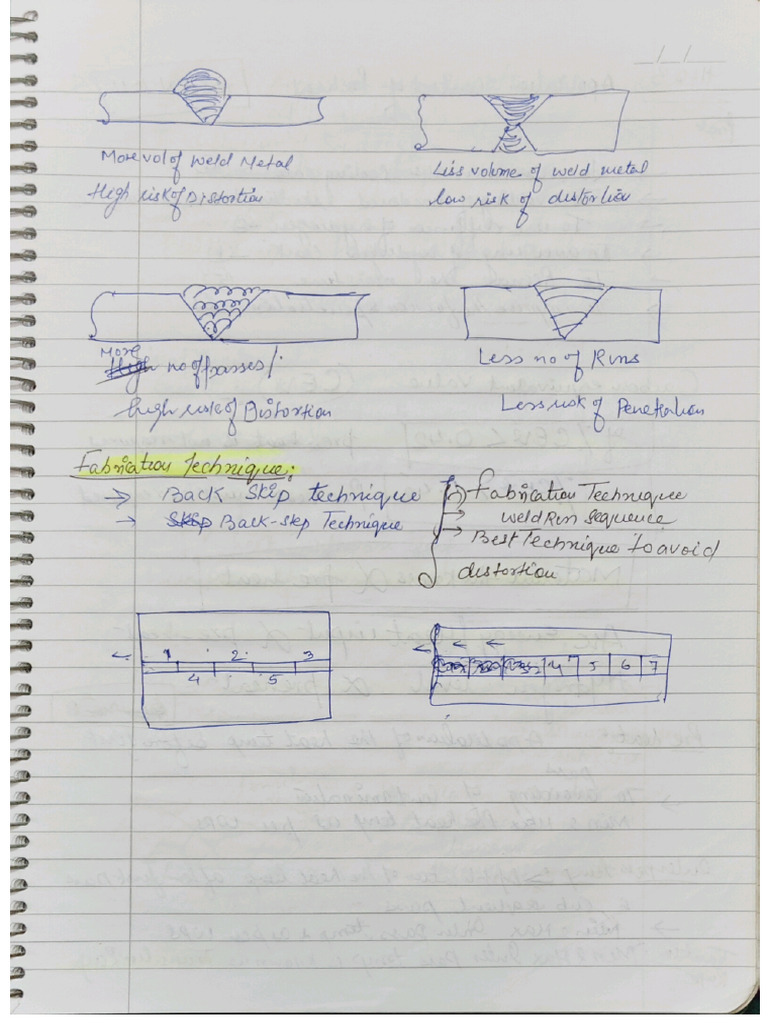 More vol of Weld Metal
High risk of Distortion
Liss volume of weld metal
low risk of distortion
More
no of passes/.
high risk of Distortion
Less no of Runs
Less risk of Penetration
Fabrication Technique:
→ Back Skip technique
→ Back-step Technique
→ Fabrication Technique
→ weld Run Sequence
→ Best Technique to avoid
distortion
1 2 3
4 5
4 5 6 7